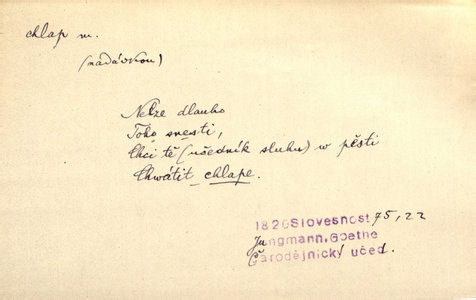 chlap m.
(nadávkou)
Nelze dlauho
Toho snesti,
Chci tě (učedník sluhu) w pěsti
Chwátit chlape.
1820 Slovesnost 75, 22
Jungmann, Goethe
Čarodějnický učed.